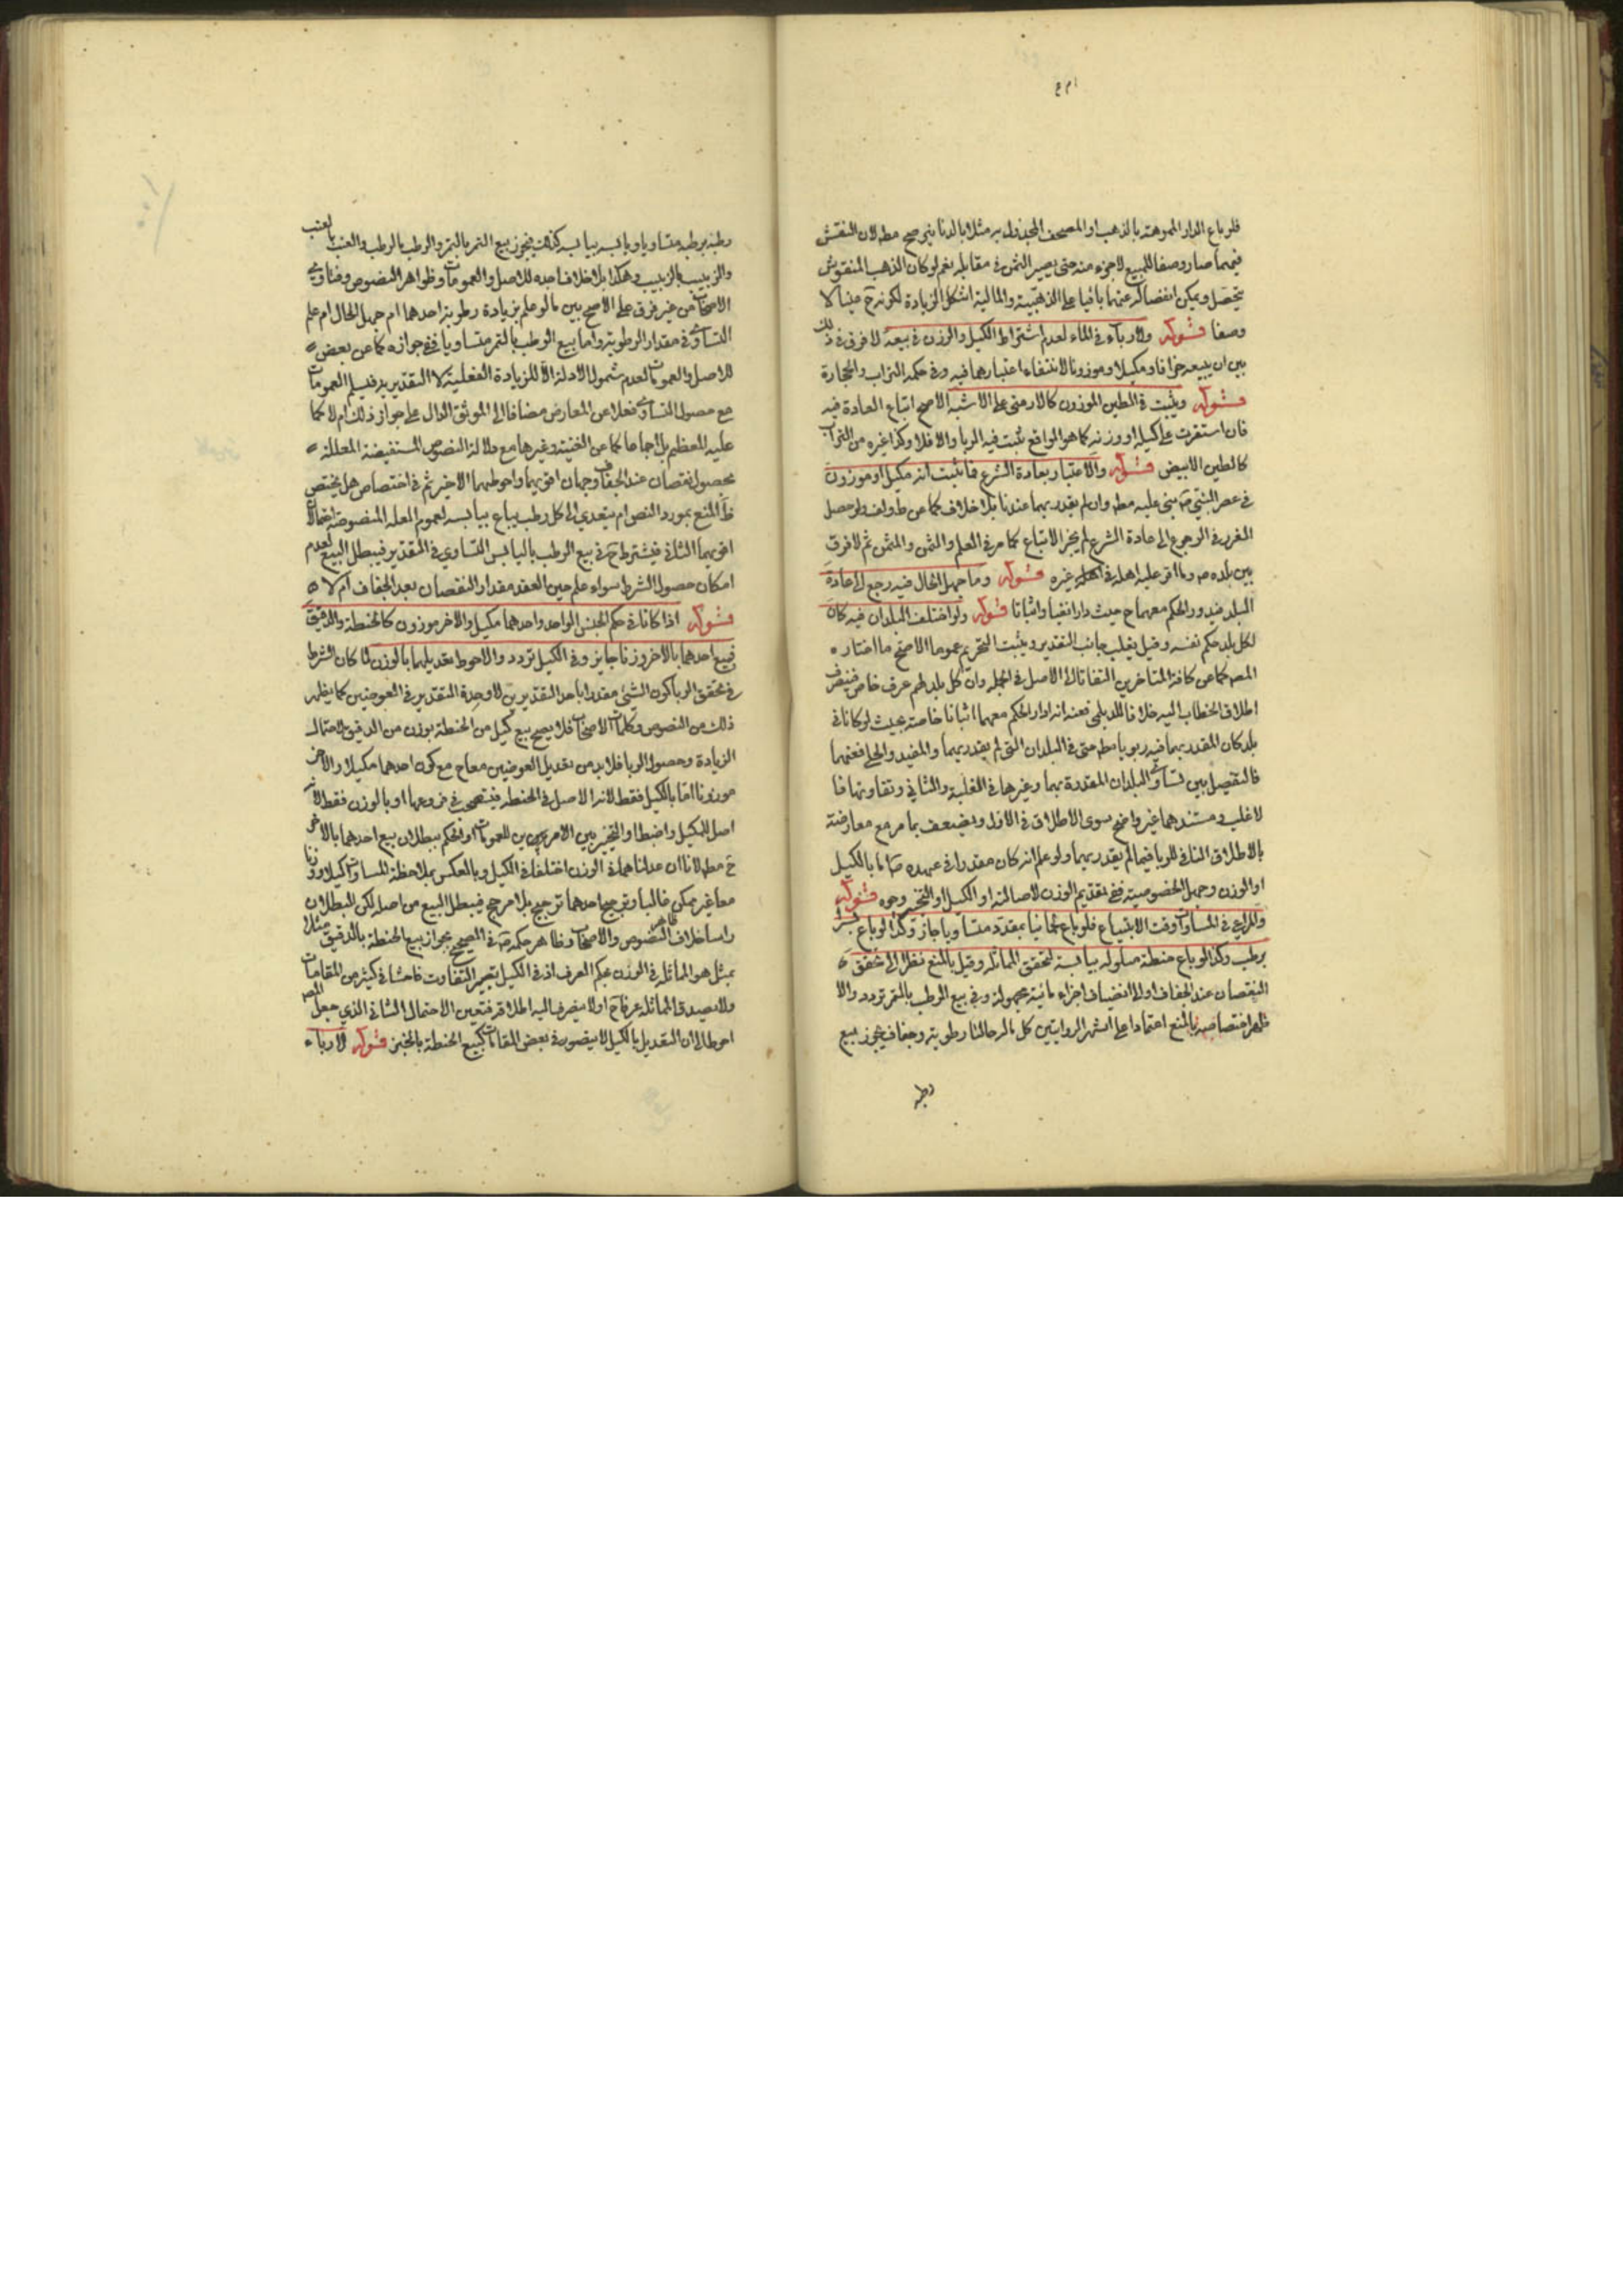 فلو باع الدار المموهة بالذهب او المصحف المجدول به مثلا بالدنانير صح مطه لان النقش
فيهما صار وصفا للمبيع لا جزء منه حتى يصير الثمن في مقابله نعم لو كان الذهب المنقوش
يتحصل ويمكن انفصاله عنها باقيا على الذهبية والمالية اشكل الزيادة لكونه ح عينا لا
وصفا قوله ولا رباء في الماء لعدم اشتراط الكيل والوزن في بيعه لا فرق في ذلك
بين ان يبيعه جزافا ومكيلا وموزونا لانتفاء اعتبارهما فيه وفي حكمه التراب والحجارة
قوله ويثبت في الطين الموزون كالارمني على الاشبه الاصح اتباع العادة فيه
فان استقرت على كيله او وزنه كما هو الواقع ثبت فيه الربا والا فلا وكذا غيره من التراب
كالطين الابيض قوله والاعتبار بعادة الشرع فما ثبت انه مكيل او موزون
في عصر النبي ص بنى عليه مطه وان لم يقدر بهما عندنا بلا خلاف كما عن طوائف ولو حصل
الغرر في الرجوع الى عادة الشرع لم يجز الاتباع كما مر في العلم والثمن والمثمن ثم لا فرق
بين بلده ص وما اقر عليه اهله في غيره قوله وما جهل الحال فيه رجع الى عادة
البلد فيدور الحكم معهما ح حيث دارا نفيا واثباتا قوله ولو اختلف البلدان فيه كان
لكل بلد حكم نفسه وقيل يغلب جانب التقدير ويثبت التحريم عموما الاصح ما اختاره
المصه كما عن كافة المتاخرين التفاتا الى الاصل في الجملة وان كل بلد لهم عرف خاص فينصرف
اطلاق الخطاب اليه خلافا للديلمي فعنه انه ادار الحكم معهما اثباتا خاصة بحيث لو كانا في
بلد كان المقدر بهما فيه ربويا مطه حتى في البلدان التي لم يقدر بهما والمفيد والحلي فعنهما
فالتفصيل بين تساوي البلدان المقدرة بهما وغيرها في الغلبة والثاني وتفاوتها فا
لاغلب ومستندهما غير واضح سوى الاطلاق في الاول ويضعف بما مر مع معارضته
بالاطلاق النافي للربا فيما لم يقدر بهما ولو علم انه كان مقدرا في عهده ص اما بالكيل
او الوزن وجهل الخصوصية ففي تقديم الوزن لاصالته او الكيل او التخيير وجوه قوله
والمراعى في المساواة وقت الابتياع فلو باع لحما نيا بمقدد متساويا جاز وكذا لو باع بسرا
برطب وكذا لو باع حنطة مبلولة بيابسة لتحقق المماثلة وقيل بالمنع نظرا الى تحقق
النقصان عند الجفاف او الى انضياف اجزاء مائية مجهولة وفي بيع الرطب بالتمر تردد والا
ظهر اختصاصه بالمنع اعتمادا على اشهر الروايتين كل ماله حالتا رطوبة وجفاف يجوز بيع
رطبه
رطبه برطبه متساويا ويابسه بيابسه كذلك فيجوز بيع التمر بالتمر والرطب بالرطب والعنب بالعنب
والزبيب بالزبيب وهكذا بلا خلاف اجده للاصل والعمومات وظواهر النصوص وفتاوي
الاصحاب من غير فرق على الاصح بين ما لو علم بزيادة رطوبة احدهما ام جهل الحال ام علم
التساوي في مقدار الرطوبة واما بيع الرطب بالتمر متساويا ففي جوازه كما عن بعض
للاصل والعمومات لعدم شمول الادلة الا للزيادة الفعلية لا التقديرية فيسلم العمومات
مع حصول التساوي فعلا عن المعارض مضافا الى الموثق الدال على جواز ذلك ام لا كما
عليه المعظم بل اجماعا كما عن الغنية وغيرها مع دلالة النصوص المستفيضة المعللة
بحصول نقصان عند الجفاف وجهان اقويهما واحوطهما الاخير ثم في اختصاص هل يختص
ظ المنع بمورد النص ام يتعدي الى كل رطب يباع بيابسه لعموم العلة المنصوصة احتمالا
اقويهما الثاني فيشترط ح في بيع الرطب باليابس التساوي في التقدير فيبطل البيع لعدم
امكان حصول الشرط سواء علم حين العقد مقدار النقصان بعد الجفاف ام لا
قوله اذا كانا في حكم الجنس الواحد واحدهما مكيل والاخر موزون كالحنطة والدقيق
فبيع احدهما بالاخر وزنا جايز وفي الكيل تردد والاحوط تعديلهما بالوزن لما كان الشرط
في تحقق الربا كون الشئ مقدرا باحد التقديرين لا وحدة التقدير في العوضين كما يظهر
ذلك من النصوص وكلمات الاصحاب فلا يصح بيع كيل من الحنطة بوزن من الدقيق لاحتمال
الزيادة وحصول الربا فلابد من تعديل العوضين معا ح مع كون احدهما مكيلا والاخر
موزونا اما بالكيل فقط لانه الاصل في الحنطة فيستصحب في فروعها او بالوزن فقط لانه
اصل للكيل واضبط او التخيير بين الامرين للعمومات او الحكم ببطلان بيع احدهما بالاخر
ح مطه لانا ان عدلناهما في الوزن اختلفا في الكيل وبالعكس بملاحظة للمساواة كيلا ووزنا
معا غير ممكن غالبا وترجيح احدهما ترجيح بلا مرجح فيبطل البيع من اصله لكن البطلان
راسا خلاف ظاهر النصوص والاصحاب وظاهر حكمه ع في الصحيح بجواز بيع الحنطة بالدقيق مثلا
بمثل هو المماثلة في الوزن بحكم العرف اذ في الكيل يصير التفاوت فاحشا في كثير من المقامات
ولا يصدق المماثلة عرفا ح او لا ينصرف اليه اطلاقه فتعين الاحتمال الثاني الذي جعل المصه
احوط الى ان التعديل بالكيل لا يتصور في بعض المقامات كبيع الحنطة بالخبز قوله لا رباء